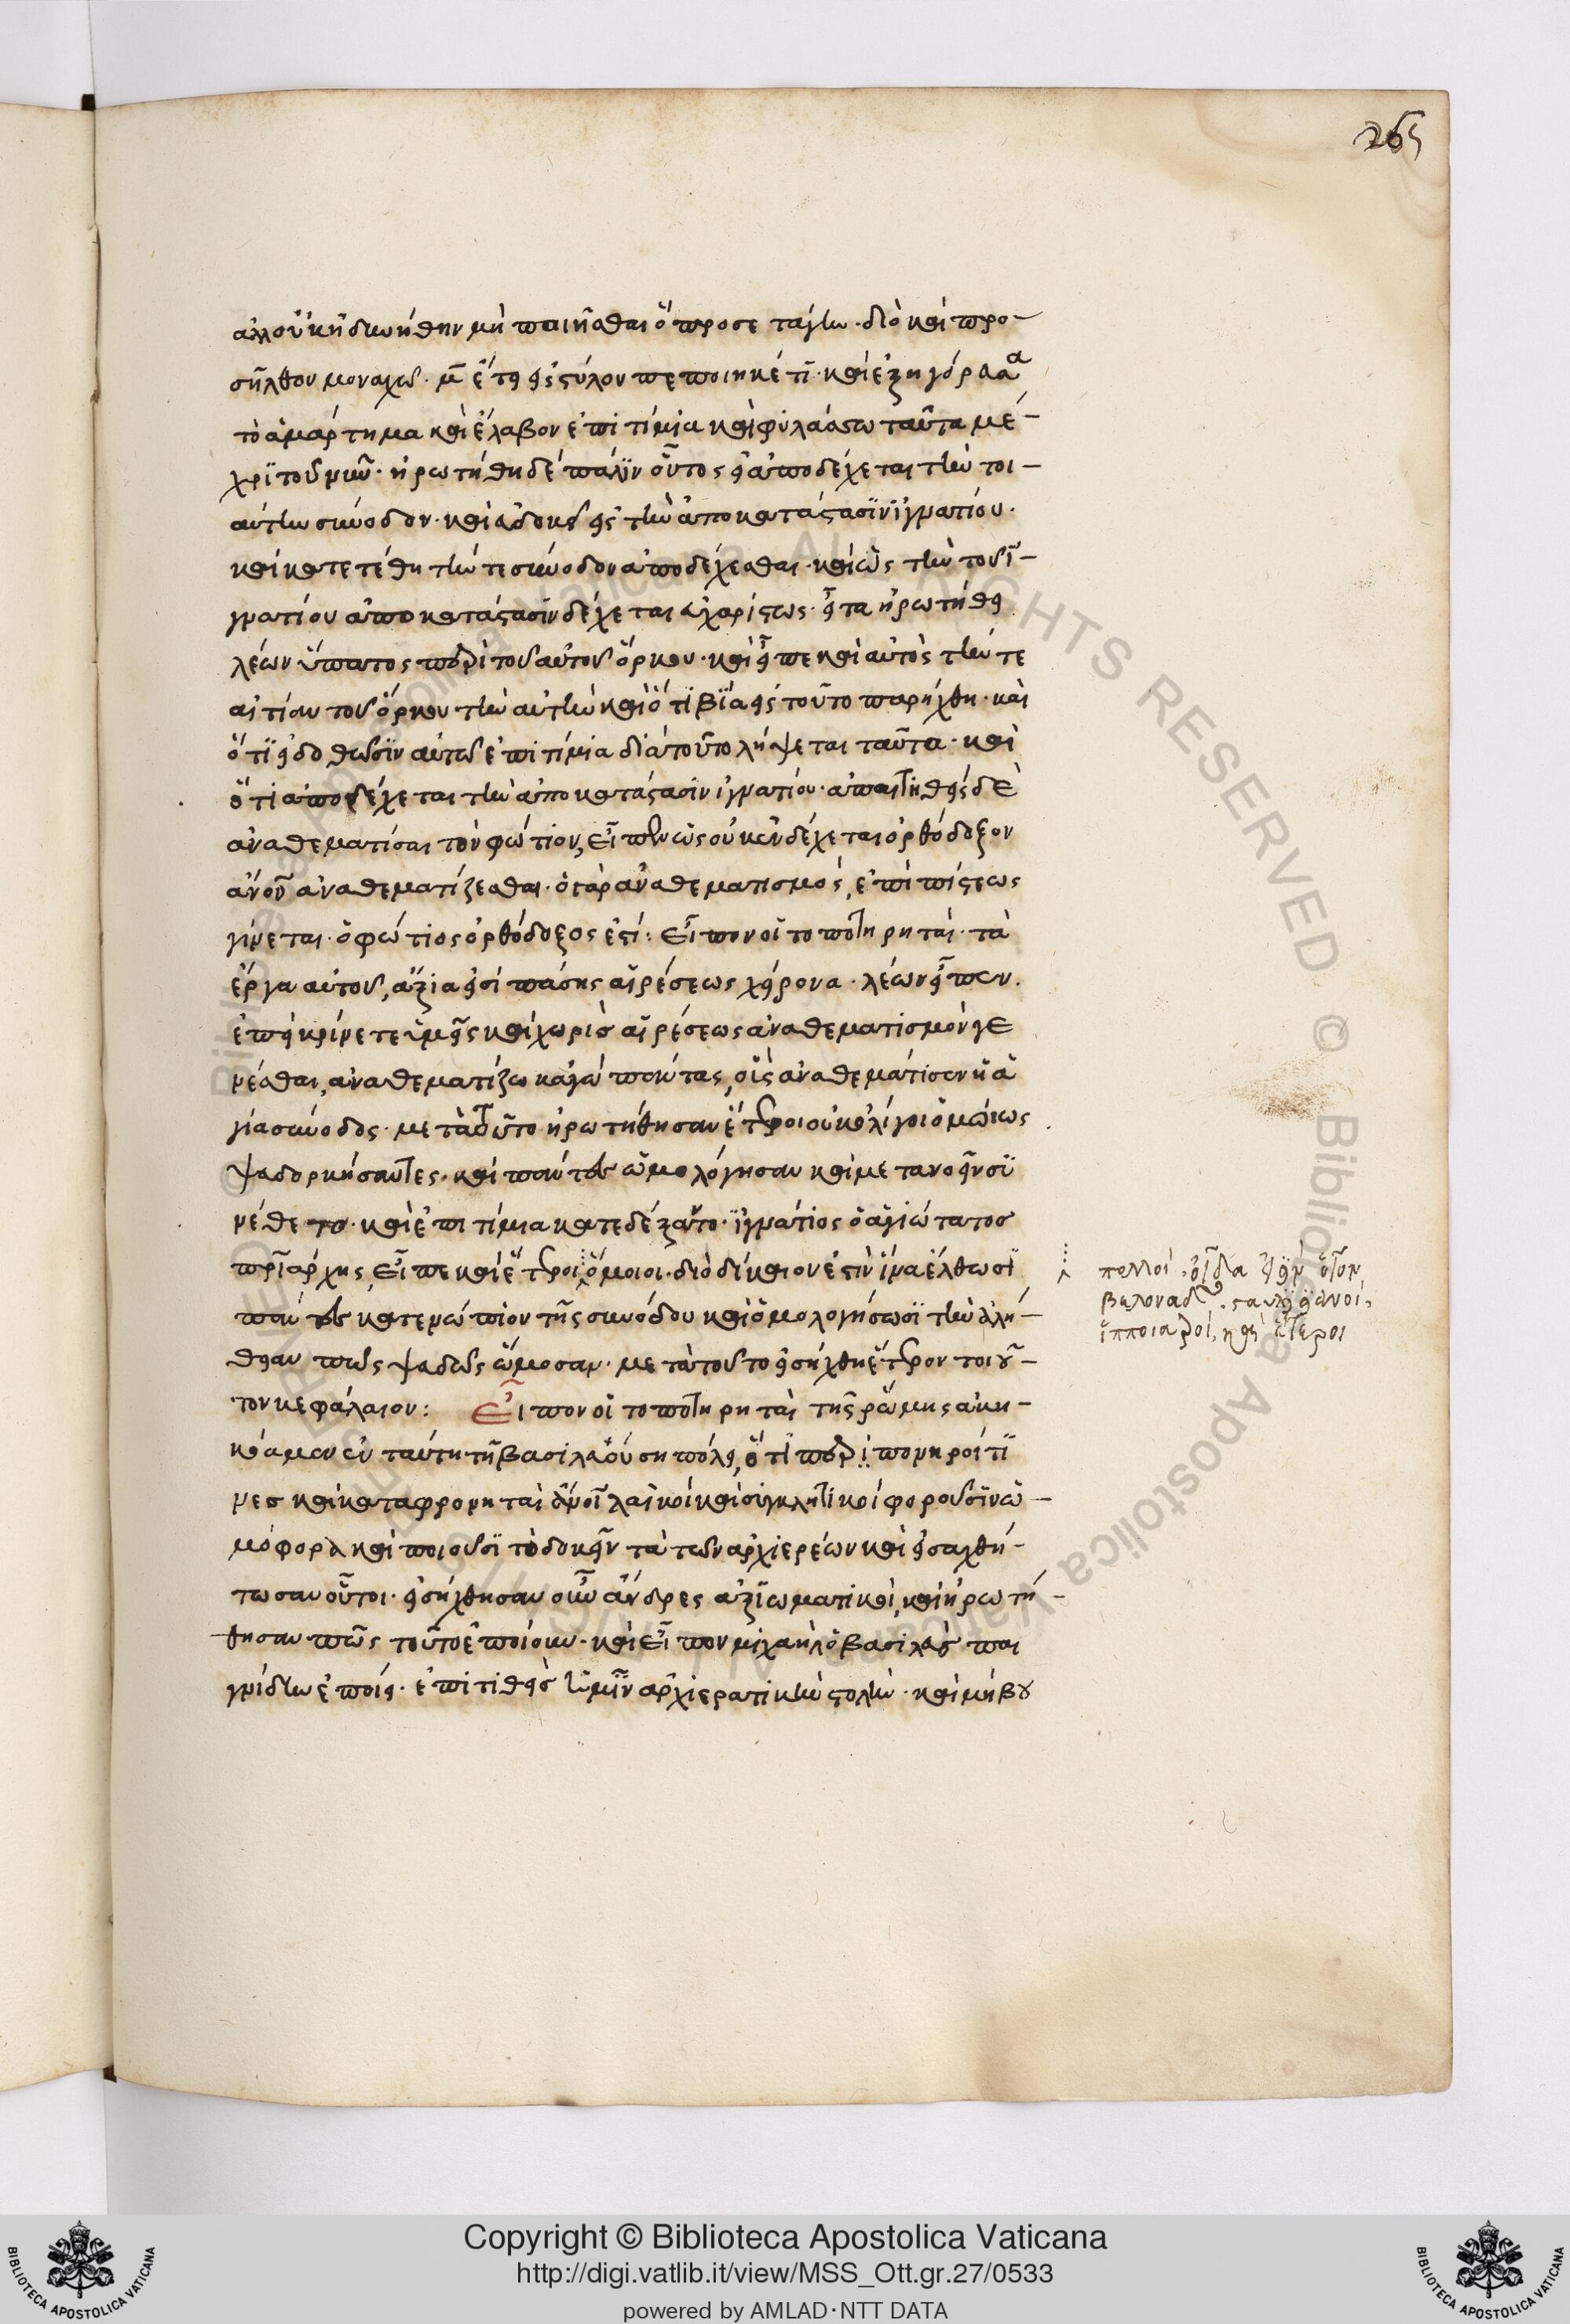 265
ἀλλ' οὐκ ἠδυνήθην μὴ ποιῆσθαι ὃ προσετάγην· διὸ καὶ προ-
σῆλθον μοναχῷ· μ̅ ἔτη εἰς στύλον πεποιηκότι· καὶ ἐξηγόρευσα
τὸ ἁμάρτημα καὶ ἔλαβον ἐπιτίμια καὶ φυλάσσω ταῦτα μέ-
χρι τοῦ νῦν· ἠρωτήθη δὲ πάλιν οὗτος εἰ ἀποδέχεται τὴν τοι-
αύτην σύνοδον· καὶ εὐδοκεῖ εἰς τὴν ἀποκατάστασιν ἰγνατίου·
καὶ κατετέθη τήν τε σύνοδον ἀποδέχεσθαι· καὶ ὡς τὴν τοῦ ἰ-
γνατίου ἀποκατάστασιν δέχεται εὐχαρίστως· εἶτα ἠρωτήθη
λέων ὕπατος περὶ τοῦ αὐτοῦ ὅρκου· καὶ εἶπε καὶ αὐτὸς τήν τε
αἰτίαν τοῦ ὅρκου τὴν αὐτὴν καὶ ὅτι βίᾳ εἰς τοῦτο παρήχθη· καὶ
ὅτι εἰ δοθῶσιν αὐτῷ ἐπιτίμια διὰ τοῦτο λήψεται ταῦτα· καὶ
ὅτι ἀποδέχεται τὴν ἀποκατάστασιν ἰγνατίου· ἀπαιτηθεὶς δὲ
ἀναθεματίσαι τὸν φώτιον, εἶπεν ὡς οὐκ ἐνδέχεται ὀρθόδοξον
ἄνον ἀναθεματίζεσθαι· ὁ γὰρ ἀναθεματισμός, ἐπὶ πίστεως
γίνεται· ὁ φώτιος ὀρθόδοξος ἐστί: εἶπον οἱ τοποτηρηταί· τὰ
ἔργα αὐτοῦ, ἄξια εἰσὶ πάσης αἱρέσεως χείρονα· λέων εἶπεν·
ἐπεὶ κρίνετε ὑμεῖς καὶ χωρὶς αἱρέσεως ἀναθεματισμὸν γε
νέσθαι, ἀναθεματίζω κἀγὼ πάντας, οἷς ἀναθεμάτισεν ἡ ἁ
γία σύνοδος· μετὰ τοῦτο ἠρωτήθησαν ἕτεροι οὐκ ὀλίγοι ὁμοίως
ψευδορκήσαντες· καὶ πάντες ὡμολόγησαν καὶ μετανοεῖν συ
νέθεντο· καὶ ἐπιτίμια κατεδέξαντο· ἰγνάτιος ὁ ἁγιώτατος
πριάρχης, εἶπε καὶ ἕτεροι ὅμοιοι· διὸ δίκαιον ἐστὶν ἵνα ἔλθωσι
πάντες κατενώπιον τῆς συνόδου καὶ ὁμολογήσωσι τὴν ἀλή-
θειαν πῶς ψευδῶς ὤμοσαν· μετὰ τοῦτο εἰσήχθη ἕτερον τοιοῦ-
τον κεφάλαιον: εἶπον οἱ τοποτηρηταὶ τῆς ῥώμης ἀκη-
κόαμεν ἐν ταύτῃ τῇ βασιλευούσῃ πόλει, ὅτι περὶ πονηροί τι
νες καὶ καταφρονηταὶ ἄνοι λαϊκοὶ καὶ συγκλητικοὶ φοροῦσιν ὠ-
μόφορα καὶ ποιοῦσι τὸ δοκεῖν τὰ τῶν ἀρχιερέων καὶ εἰσαχθή-
τωσαν οὗτοι· εἰσήχθησαν οὖν ἄνδρες ἀξιωματικοί, καὶ ἠρωτή-
θησαν πῶς τοῦτο ἐποίουν· καὶ εἶπον μιχαὴλ ὁ βασιλεὺς παι
γνίδιν ἐποίει· ἐπιτιθεὶς ἡμῖν ἀρχιερατικὴν στολήν· καὶ μὴ βου
πολλοί,
καὶ ἕτεροι
Copyright © Biblioteca Apostolica Vaticana
http://digi.vatlib.it/view/MSS_Ott.gr.27/0533
powered by AMLAD·NTT DATA
BIBLIOTECA APOSTOLICA VATICANA
BIBLIOTECA APOSTOLICA VATICANA